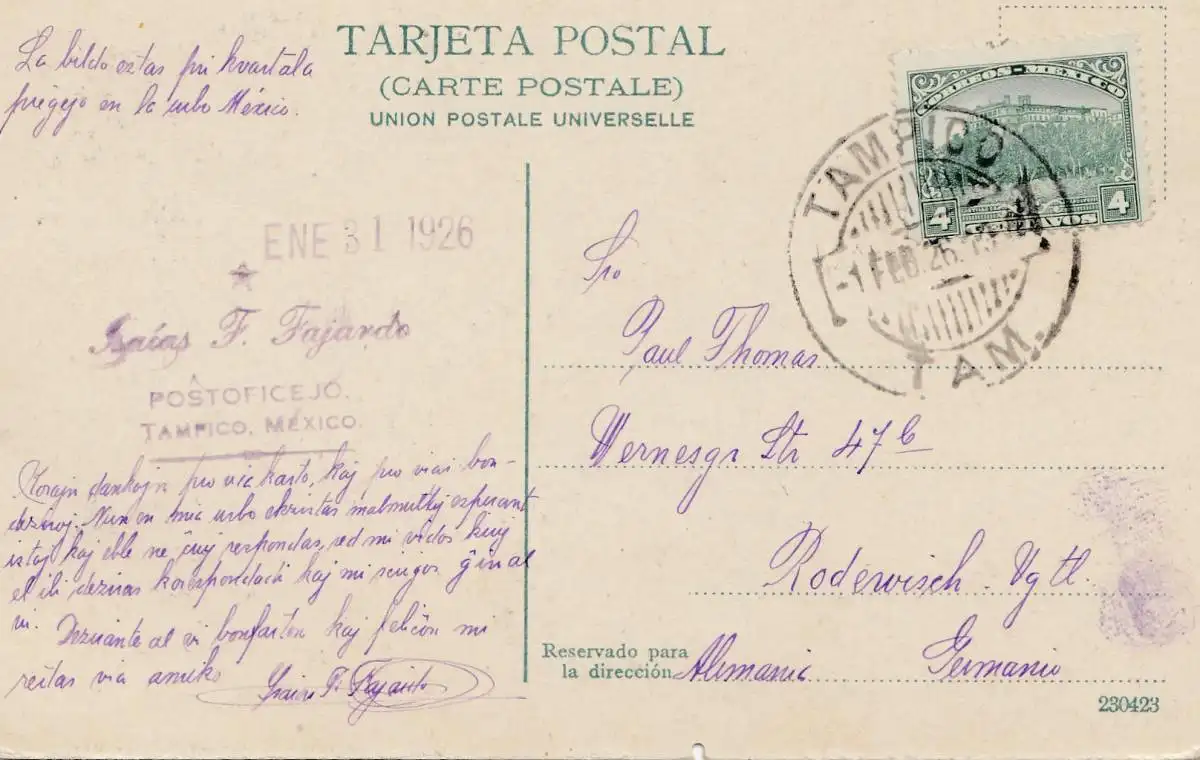 La bildo estas pri kvartala
preĝejo en la urbo México.
TARJETA POSTAL
(CARTE POSTALE)
UNION POSTALE UNIVERSELLE
CORREOS-MEXICO
4 CENTAVOS 4
TAMPICO
-1 FEB. 26
TAM.
ENE 31 1926
Isaías F. Fajardo
POSTOFICEJO.
TAMPICO, MÉXICO.
Korajn dankojn pro via karto, kaj pro viai bon-
deziroj. Nun en mia urbo ekzistas malmultaj esperant
istoj kaj eble ne ĉiuj respondas, sed mi vidos kiuj
el ili deziras korespondadi kaj mi sciigos ĝin al
vi. Dezirante al vi bonfarton kaj feliĉon mi
restas via amiko
Isaías F. Fajardo
Sro
Paul Thomas
Wernesgr Str 47b
Rodewisch. Vgtl.
Reservado para
la dirección
Alemania Germanio
230423